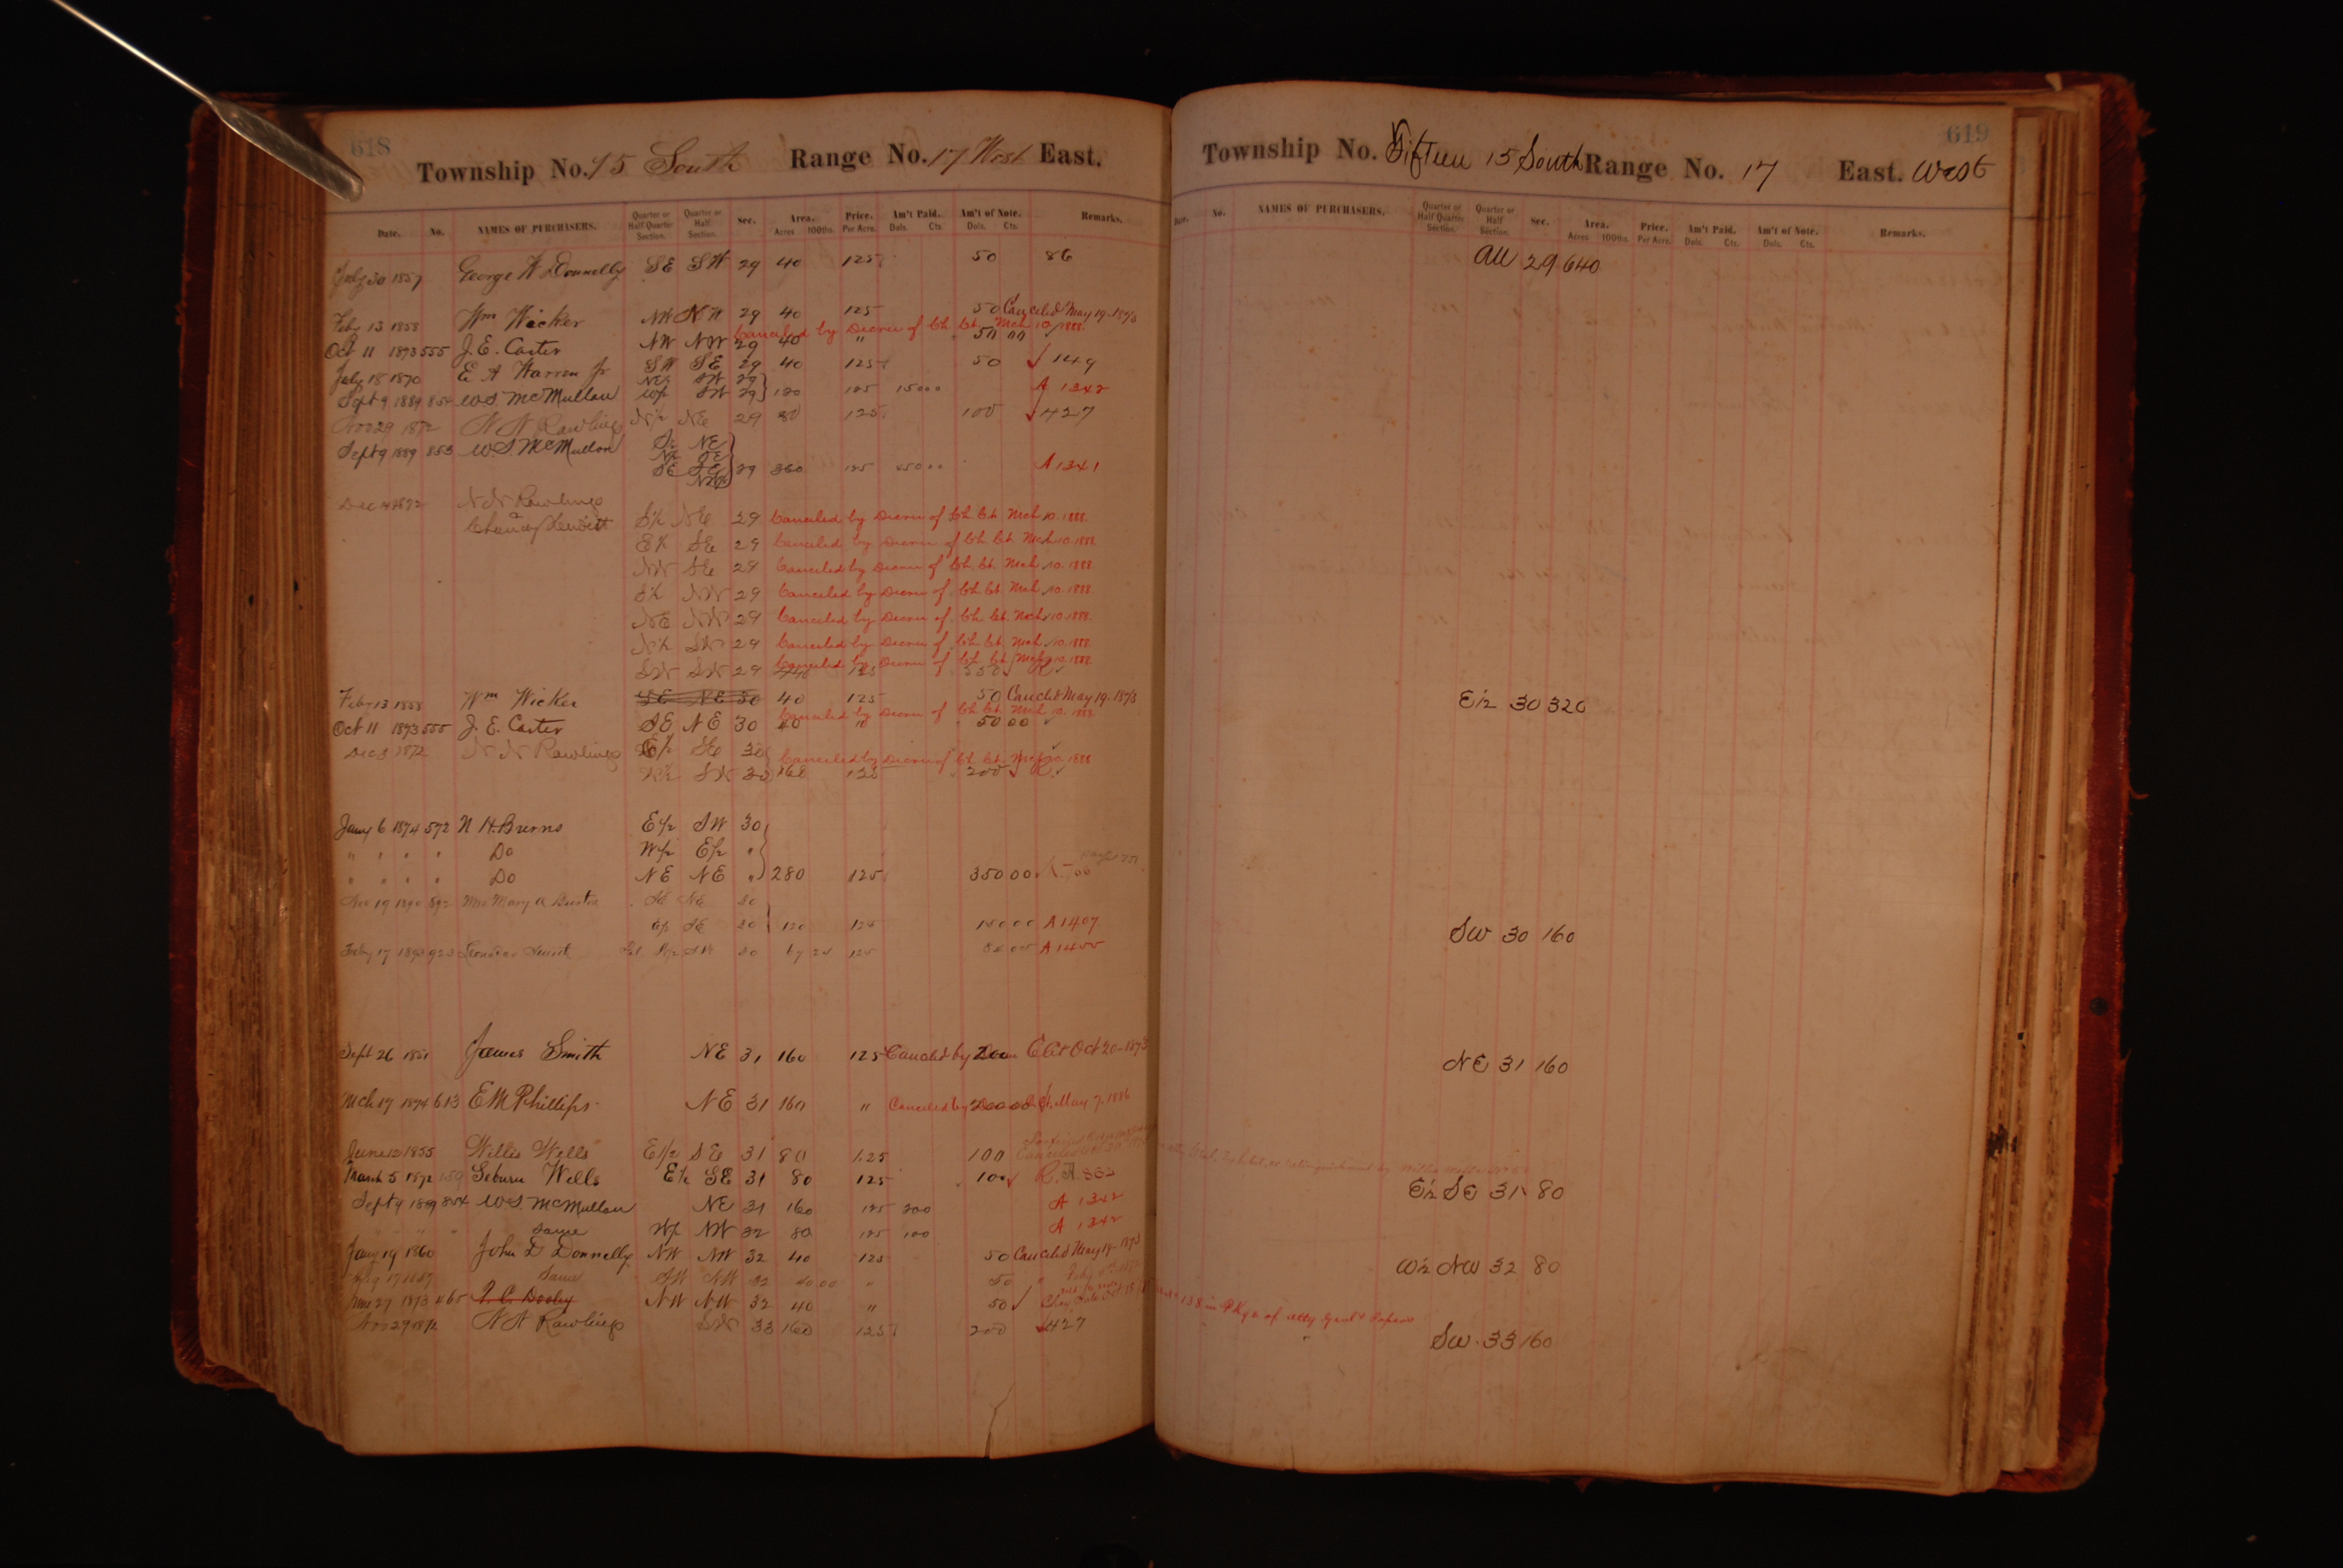 618
Township No. 15 South Range No. 17 West East.
Date. No. NAMES OF PURCHASERS. Quarter or Half Quarter Section. Quarter or Half Section. Sec. Area. Acres 100ths. Price. Per Acre. Am't Paid. Dols. Cts. Am't of Note. Dols. Cts. Remarks.
July 30 1857 George W Donnelly SE SW 29 40 125 50 86
Feby 13 1858 Wm Wicker NW NW 29 40 125 50 Canceled May 19-1873
Canceled by Decree of Ch. Ct. Mch 10. 1888.
Oct 11 1873 555 J. E. Carter NW NW 29 40 " 50 00
July 18 1870 E A Warren Jr SW SE 29 40 125 50 √ 149
NE¼ SW 29
Sept 9 1889 852 W.S. McMullan W½ SW 29 } 120 125 150 00 A 1342
Nov 29 1872 N N Rawlings N½ NE 29 80 125 100 √ 427
Sept 9 1889 853 W.S. McMullan S½ NE
N½ SE
SE SE } 29 360 125 450 00 A 1341
Dec 4 1872 N N Rawlings
S½ NE 29 Canceled by Decree of Ch. Ct. Mch 10. 1888.
E½ SE 29 Canceled by Decree of Ch. Ct. Mch 10. 1888.
NW SE 29 Canceled by Decree of Ch. Ct. Mch 10. 1888.
S½ NW 29 Canceled by Decree of Ch. Ct. Mch 10. 1888.
NE NW 29 Canceled by Decree of Ch. Ct. Mch 10. 1888.
N½ SW 29 Canceled by Decree of Ch. Ct. Mch 10. 1888.
Canceled by Decree of Ch. Ct. Mch 10. 1888.
SW SW 29 440 125 550 √ R √
Feby 13 1858 Wm Wicker SE NE 30 40 125 50 Canceld May 19-1873
Canceled by Decree of Ch. Ct. Mch 10. 1888
Oct 11 1873 555 J. E. Carter SE NE 30 40 " 50 00
Dec 3 1872 N N Rawlings E½ SE 30
Canceled by Decree of Ch. Ct. Mch 10. 1888
W½ SW 30 160 125 200 √ R √
Jany 6 1874 572 N H. Burns E½ SW 30
" " " " Do W½ E½ "
" " " " Do NE NE " } 280 125 350 00
Nov 19 1890 892 Mrs Mary A SE NE 30
E½ SE 30 120 125 150 00 A 1407
Feby 17 1893 923 30 67 24 125 A 1455
Sept 26 1851 James Smith NE 31 160 125 Canceled by Decree 200 C Ct Oct 20-1873
Mch 17 1874 613 E M Phillips NE 31 160 " Canceled by 200 00 May 7. 1886
June 12 1855 Willis Wells E½ SE 31 80 1.25 100
March 5 1872 159 Seburn Wells E½ SE 31 80 125 100 √ R. A. 832
Sept 9 1889 854 W.S. McMullan NE 31 160 125 200 A 1342
" " " " Same W½ NW 32 80 125 100 A 1342
Jany 19 1860 John D Donnelly NW NW 32 40 125 50 Canceled May 19-1873
Same SW NW 32 40.00 " 50 "
June 27 1873 465 NW NW 32 40 " 50 √
Nov 29 1872 N N Rawlings SW 33 160 125 200 √ 427
619
Township No. Fifteen 15 South Range No. 17 East. West
Date. No. NAMES OF PURCHASERS. Quarter or Half Quarter Section. Quarter or Half Section. Sec. Area. Acres 100ths. Price. Per Acre. Am't Paid. Dols. Cts. Am't of Note. Dols. Cts. Remarks.
All 29 640
E½ 30 320
SW 30 160
NE 31 160
E½ SE 31 80
W½ NW 32 80
SW 33 160